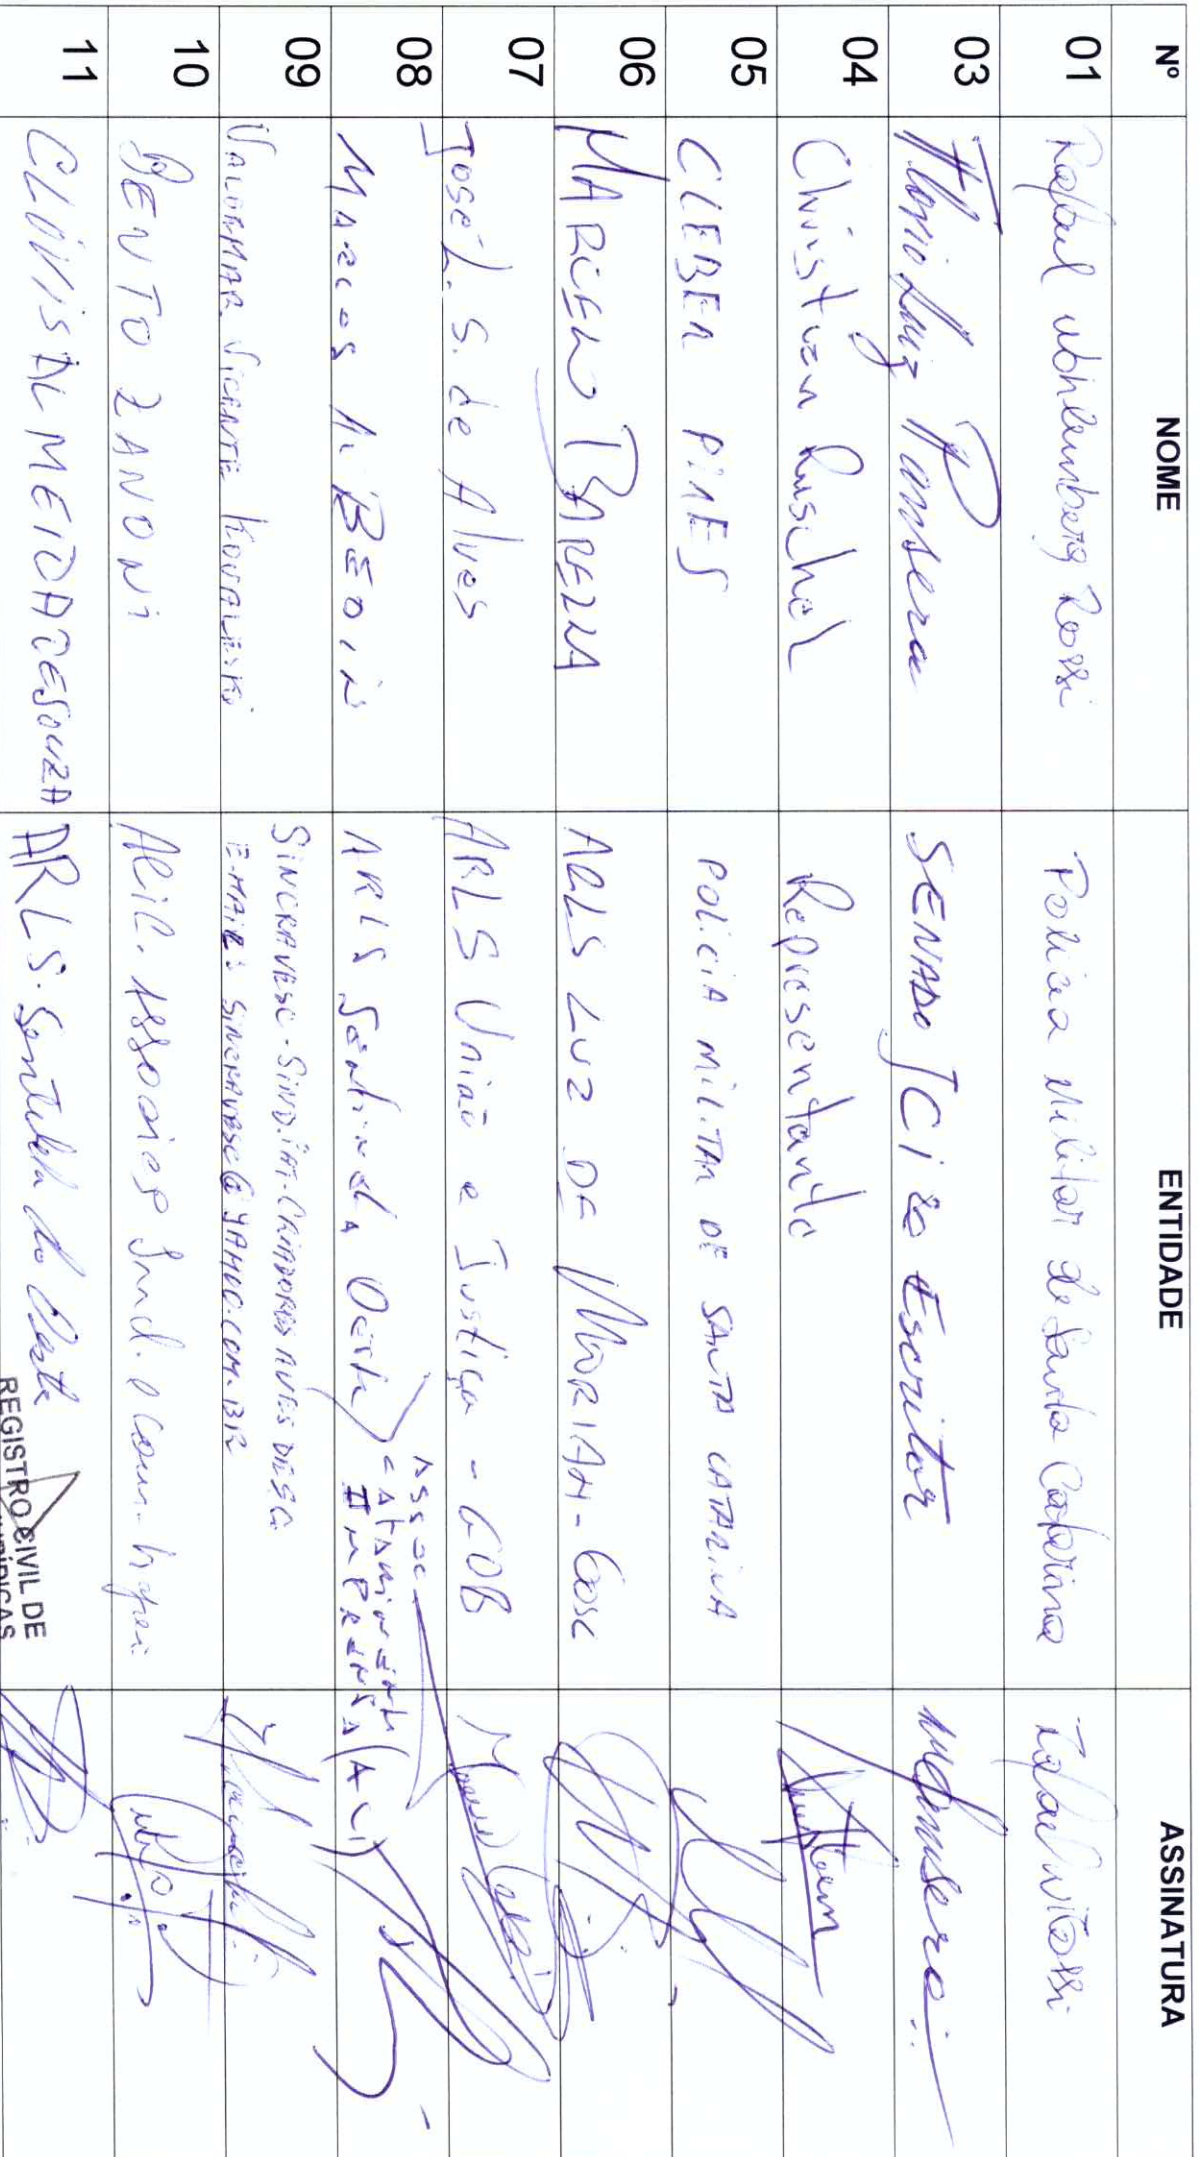 Nº NOME ENTIDADE ASSINATURA
01 Rafael Wohlemberg Rossi Policia Militar de Santa Catarina
03 Luiz Pansera SENADO JCI ao Escritor
04 Christian Ruschel Representante
05 CLEBER PIRES POLICIA MILITAR DE SANTA CATARINA
06 ARLS LUZ DE MORIAH - GOSC
07 José L. S. de Alves ARLS União e Justiça - GOB
08 Marcos A. BEDIN ARLS Sentinela Oeste
Assoc
Catarinense
Imprensa (ACI)
09 VALDEMAR VICENTE KOVALESKI SINCRAVESC - SIND. PAT. CRIADORES AVES DE SC.
E-MAIL: SINCRAVESC@YAHOO.COM.BR
10 BENTO ZANONI
11 CLOVIS ALMEIDA DE SOUZA ARLS. Sentinela do Oeste
REGISTRO CIVIL DE